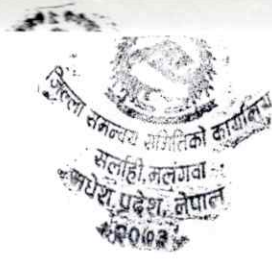 जिल्ला समन्वय समितिको कार्यालय
सर्लाही, मलंगवा
मधेश प्रदेश, नेपाल
२०७३